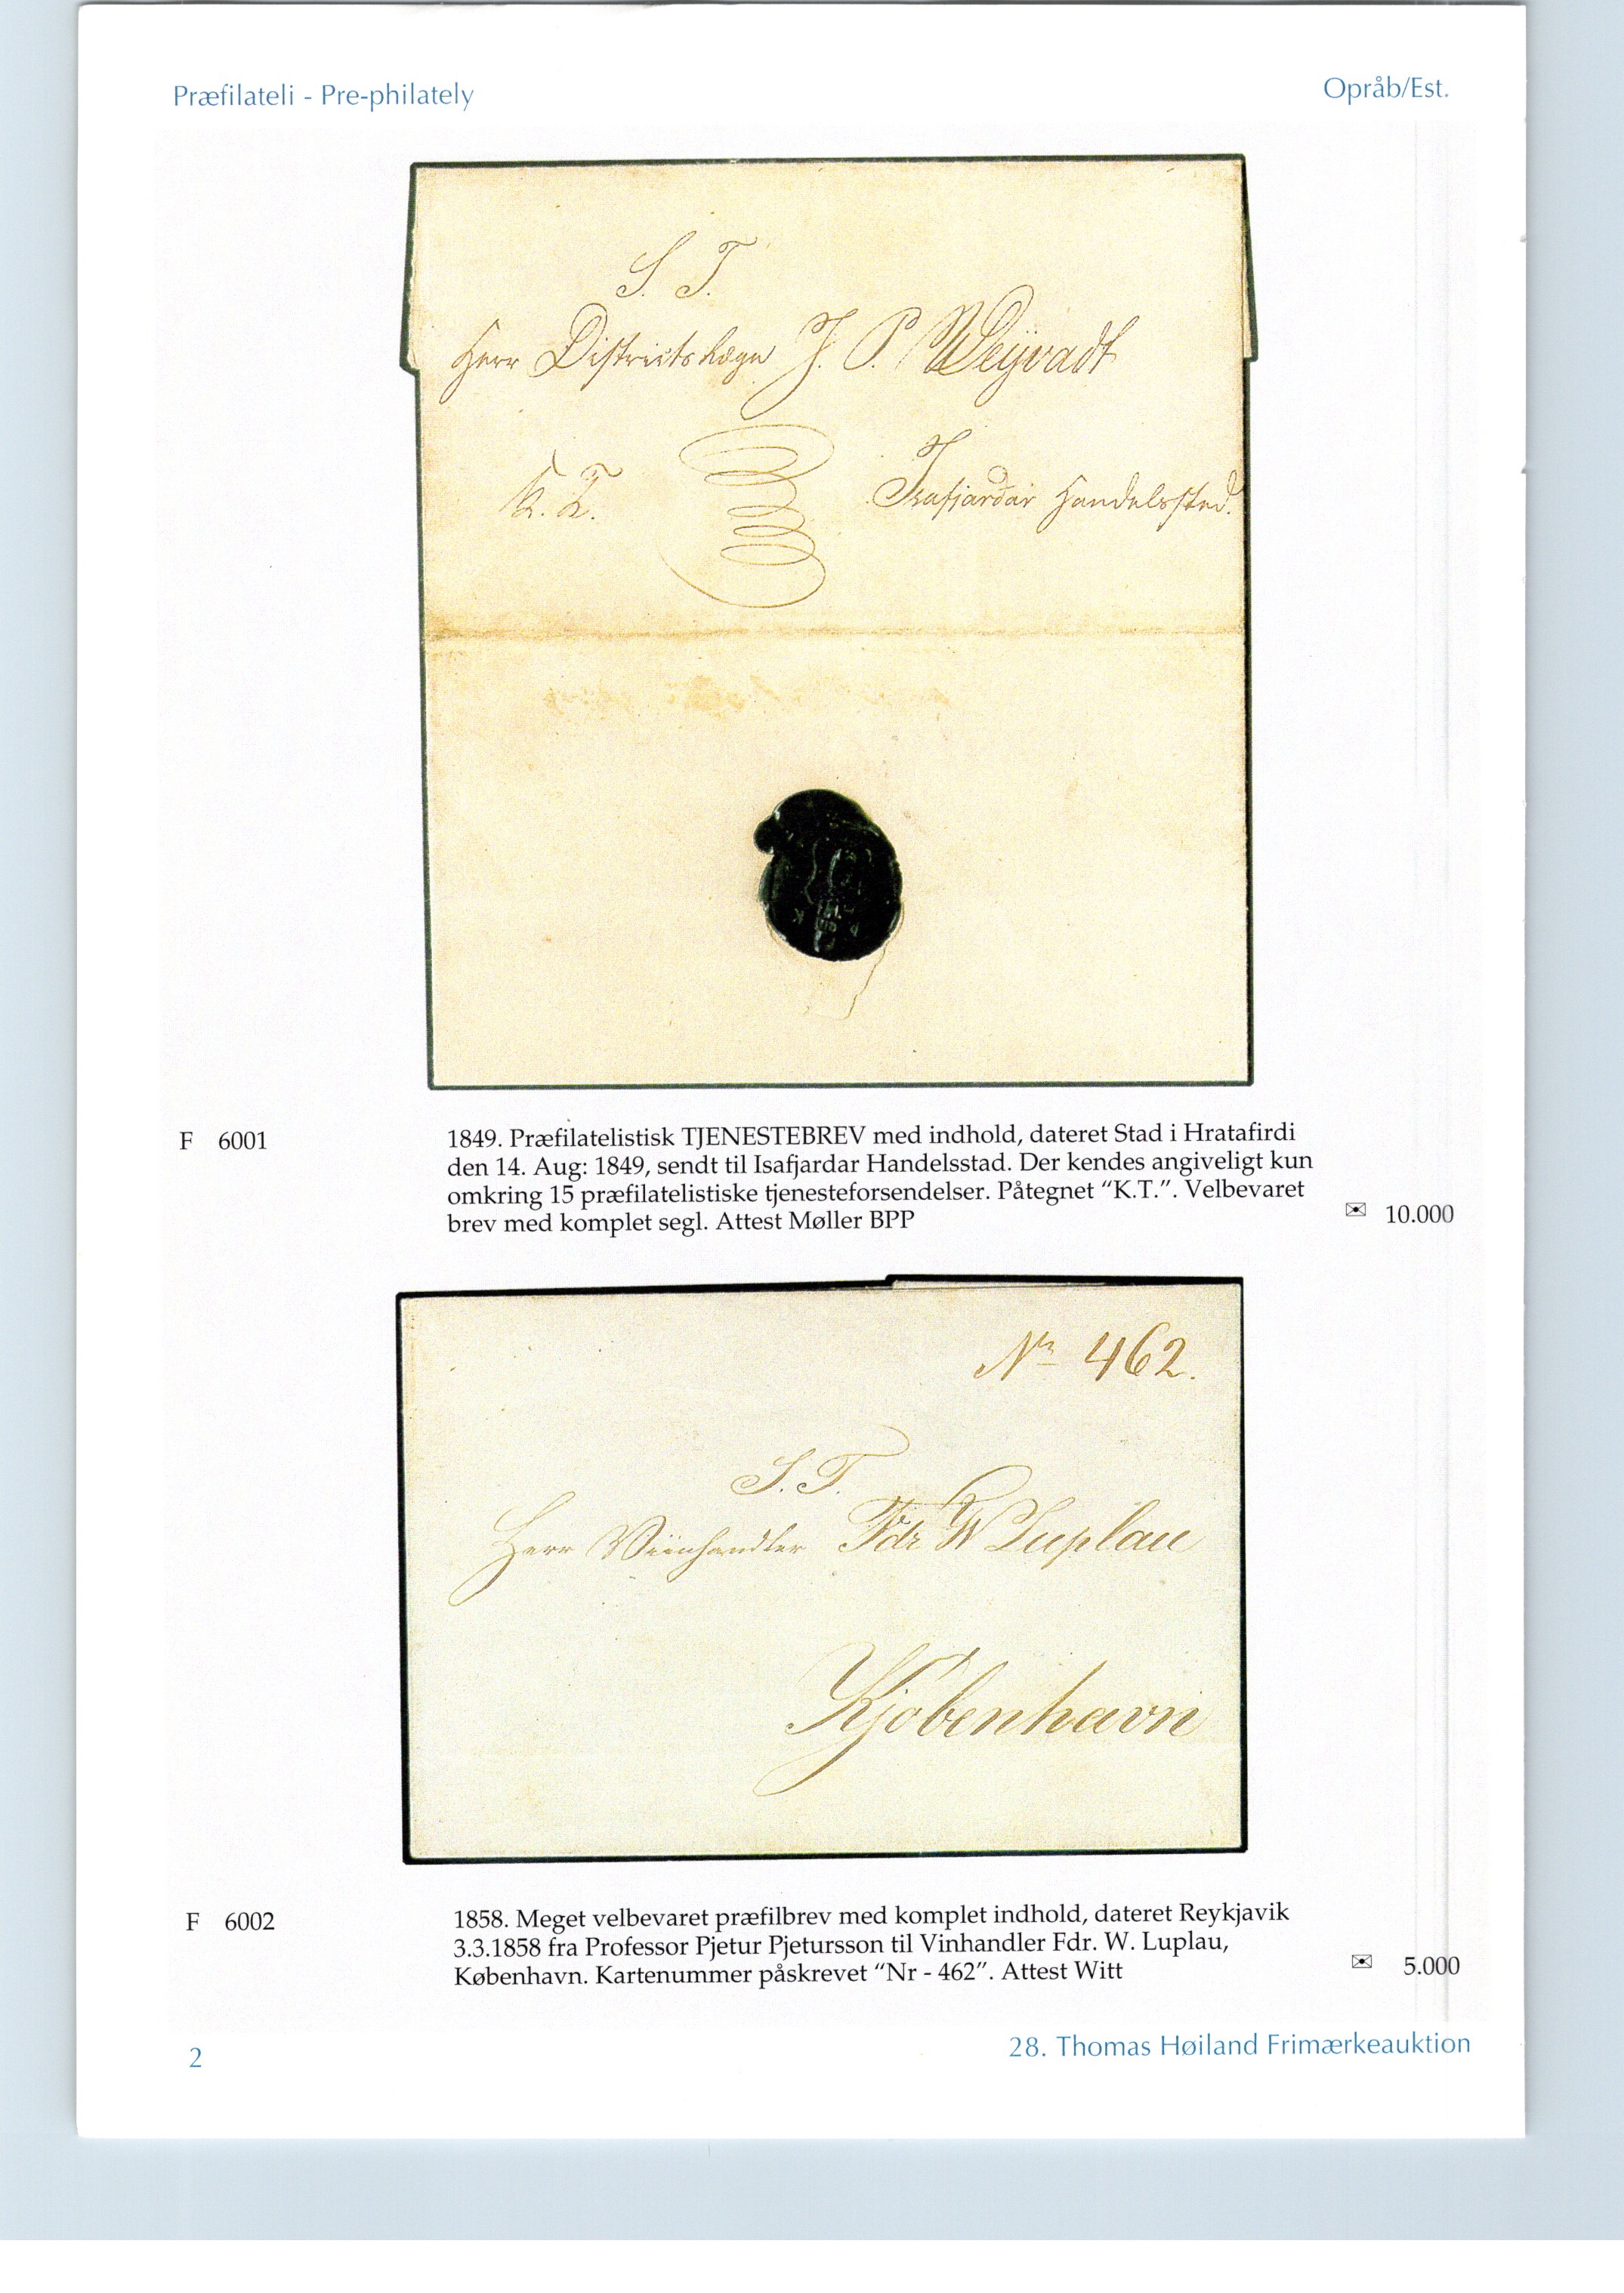 Præfilateli - Pre-philately
Opråb/Est.
S. T.
Herr Districtslæge J. P. Weyvadt
K. T.
Isafjardar Handelssted.
F 6001
1849. Præfilatelistisk TJENESTEBREV med indhold, dateret Stad i Hratafirdi
den 14. Aug: 1849, sendt til Isafjardar Handelsstad. Der kendes angiveligt kun
omkring 15 præfilatelistiske tjenesteforsendelser. Påtegnet “K.T.”. Velbevaret
brev med komplet segl. Attest Møller BPP
10.000
Nr 462.
S. T.
Herr Viinhandler Fdr W Luplau
Kjöbenhavn
F 6002
1858. Meget velbevaret præfilbrev med komplet indhold, dateret Reykjavik
3.3.1858 fra Professor Pjetur Pjetursson til Vinhandler Fdr. W. Luplau,
København. Kartenummer påskrevet “Nr - 462”. Attest Witt
5.000
2
28. Thomas Høiland Frimærkeauktion